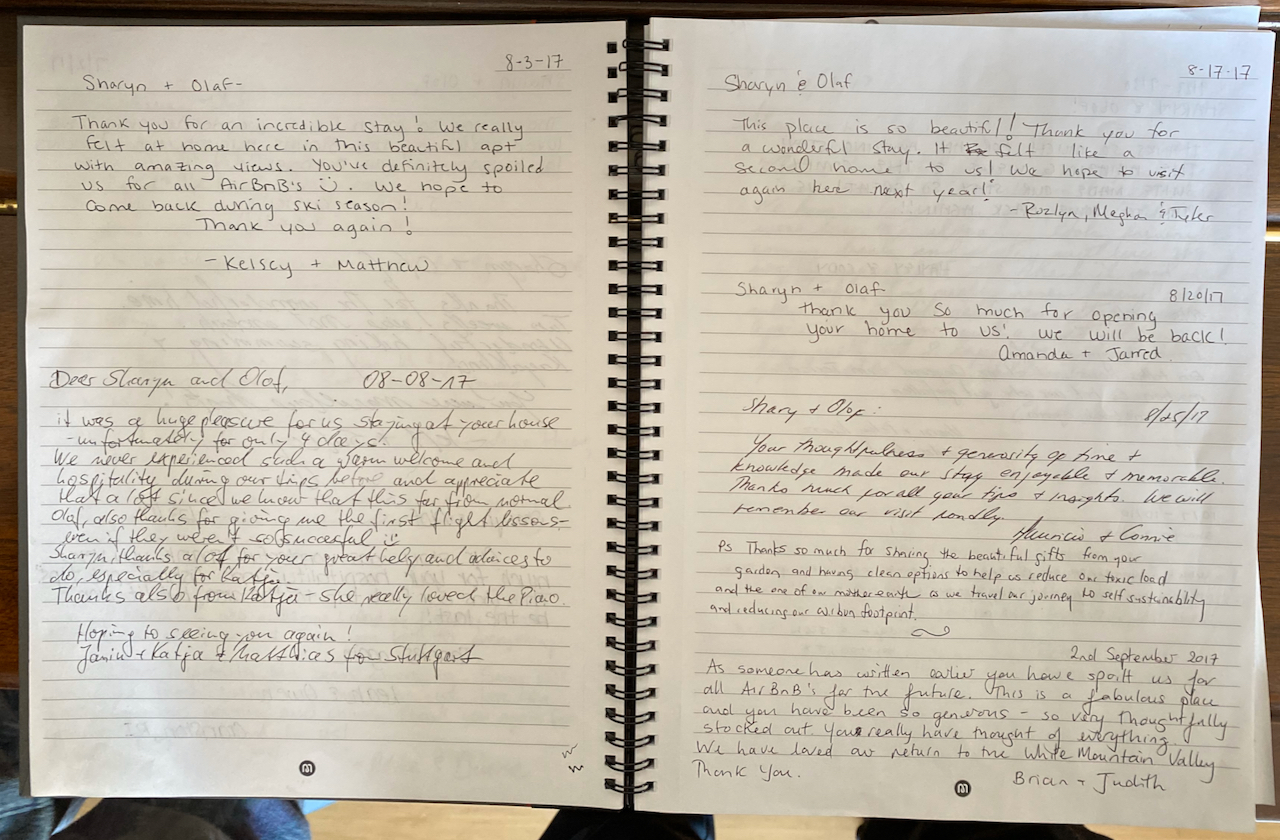 8-3-17
Sharyn + Olaf-
Thank you for an incredible stay! We really
felt at home here in this beautiful apt
with amazing views. You've definitely spoiled
us for all AirBnB's ☺. We hope to
come back during ski season!
Thank you again!
- Kelsey + Matthew
Dear Sharyn and Olof, 08-08-17
it was a huge pleasure for us staying at your house
- unfortunately for only 4 days.
We never experienced such a warm welcome and
hospitality during our trips before and appreciate
that a lot since we know that this far from normal.
Olof, also thanks for giving me the first flight lessons-
even if they weren't so succesful ☺
Sharyn, thanks a lot for your great help and advices to
do, especially for Katja.
Thanks also from Katja - she really loved the Piano.
Hoping to seeing you again!
Janin + Katja + Matthias from Stuttgart
8-17-17
Sharyn & Olaf
This place is so beautiful! Thank you for
a wonderful stay. It felt like a
second home to us! We hope to visit
again here next year!
- Rozlyn, Meghan & Tyler
Sharyn + Olaf 8/20/17
thank you so much for opening
your home to us! we will be back!
Amanda + Jarred
Shary + Olof: 8/25/17
Your thoughtfulness + generosity of time +
knowledge made our stay enjoyable & memorable.
Thanks much for all your tips + insights. We will
remember our visit fondly.
+ Connie
Ps Thanks so much for sharing the beautiful gifts from your
garden and having clean options to help us reduce our toxic load
and the one of our mother earth as we travel our journey to self sustainability
and reducing our carbon footprint.
2nd September 2017
As someone has written earlier you have spoilt us for
all AirBnB's for the future. This is a fabulous place
and you have been so generous - so very thoughtfully
stocked out. You really have thought of everything
We have loved our return to the White Mountain Valley
Thank You.
Brian + Judith